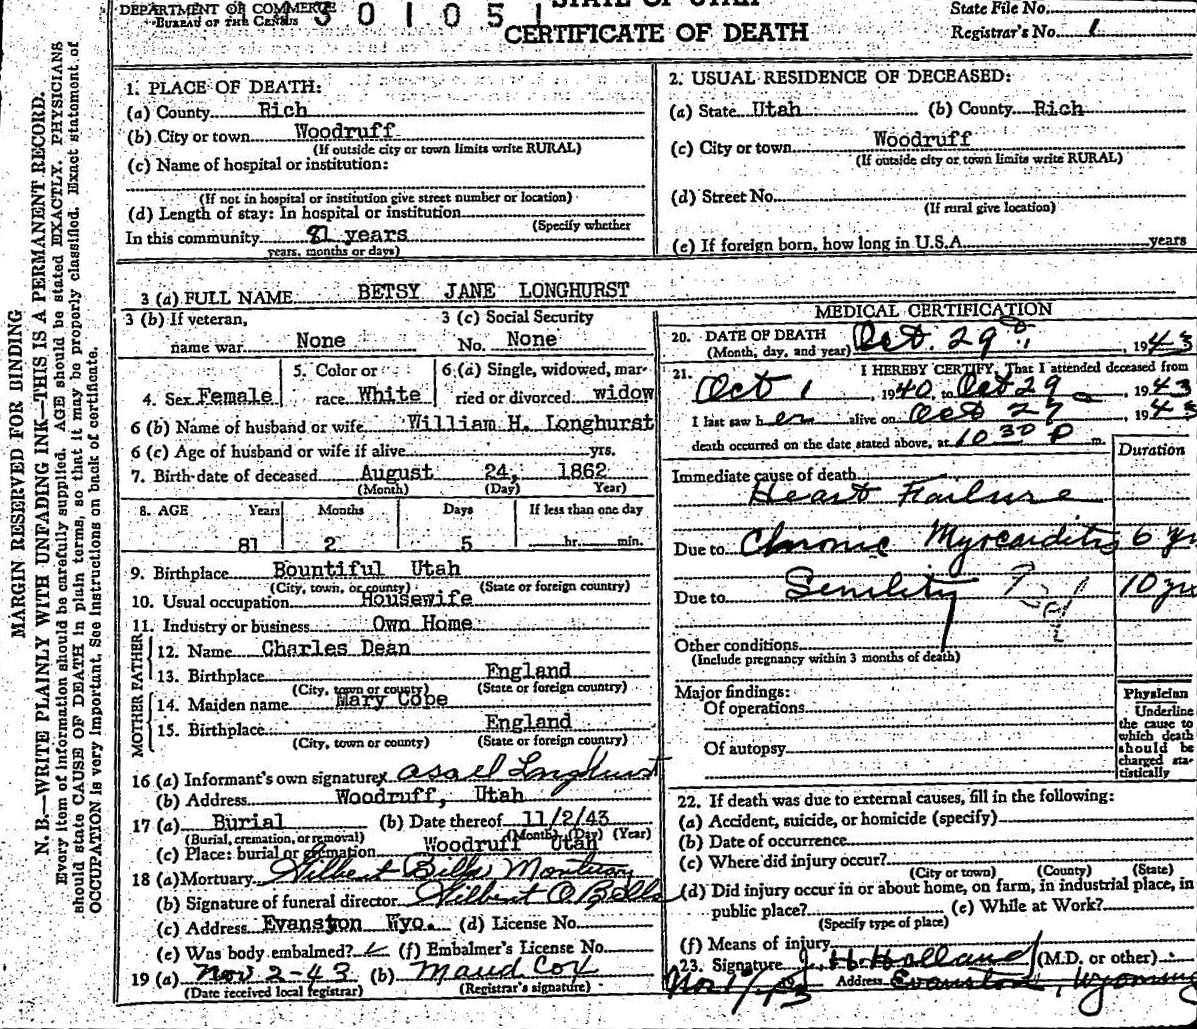 DEPARTMENT OF COMMERCE
BUREAU OF THE CENSUS
3 0 1 0 5 1
STATE OF UTAH
CERTIFICATE OF DEATH
State File No.
Registrar's No. 1
MARGIN RESERVED FOR BINDING
N. B.—WRITE PLAINLY WITH UNFADING INK—THIS IS A PERMANENT RECORD.
Every item of information should be carefully supplied. AGE should be stated EXACTLY. PHYSICIANS
should state CAUSE OF DEATH in plain terms, so that it may be properly classified. Exact statement of
OCCUPATION is very important. See instructions on back of certificate.
1. PLACE OF DEATH:
(a) County Rich
(b) City or town Woodruff
(If outside city or town limits write RURAL)
(c) Name of hospital or institution:
(If not in hospital or institution give street number or location)
(d) Length of stay: In hospital or institution
(Specify whether
In this community 81 years
years, months or days)
2. USUAL RESIDENCE OF DECEASED:
(a) State Utah (b) County Rich
(c) City or town Woodruff
(If outside city or town limits write RURAL)
(d) Street No.
(If rural give location)
(e) If foreign born, how long in U.S.A. years
3 (a) FULL NAME BETSY JANE LONGHURST
3 (b) If veteran,
name war None
3 (c) Social Security
No. None
4. Sex Female
5. Color or
race White
6 (a) Single, widowed, mar-
ried or divorced widow
6 (b) Name of husband or wife William H. Longhurst
6 (c) Age of husband or wife if alive yrs.
7. Birth-date of deceased August 24, 1862
(Month) (Day) Year)
8. AGE Years Months Days If less than one day
81 2 5 hr. min.
9. Birthplace Bountiful Utah
(City, town, or county) (State or foreign country)
10. Usual occupation Housewife
11. Industry or business Own Home
FATHER
12. Name Charles Dean
13. Birthplace England
(City, town or county) (State or foreign country)
MOTHER
14. Maiden name Mary Cope
15. Birthplace England
(City, town or county) (State or foreign country)
16 (a) Informant's own signature x Asael Longhurst
(b) Address Woodruff, Utah
17 (a) Burial (b) Date thereof 11/2/43
(Burial, cremation, or removal) (Month) (Day) (Year)
(c) Place: burial or cremation Woodruff Utah
18 (a) Mortuary Wilbert Bills Mortuary
(b) Signature of funeral director Wilbert O Bills
(c) Address Evanston Wyo. (d) License No.
(e) Was body embalmed? ✓ (f) Embalmer's License No.
19 (a) Nov 2-43 (b) Maud Cox
(Date received local registrar) (Registrar's signature)
MEDICAL CERTIFICATION
20. DATE OF DEATH
(Month, day, and year) Oct. 29th, 1943
21. I HEREBY CERTIFY, That I attended deceased from
Oct 1, 1940, to Oct 29, 1943
I last saw her alive on Oct 27 1943
death occurred on the date stated above, at 10 30 P m.
Duration
Immediate cause of death
Heart Failure
Due to Chronic Myocarditis 6 yr
Due to Senility 10 yrs
Other conditions
(Include pregnancy within 3 months of death)
Major findings:
Of operations
Of autopsy
Physician
Underline
the cause to
which death
should be
charged sta-
tistically
22. If death was due to external causes, fill in the following:
(a) Accident, suicide, or homicide (specify)
(b) Date of occurrence
(c) Where did injury occur?
(City or town) (County) (State)
(d) Did injury occur in or about home, on farm, in industrial place, in
public place? (e) While at Work?
(Specify type of place)
(f) Means of injury
23. Signature J. H. Holland (M.D. or other)
Address Evanston, Wyoming